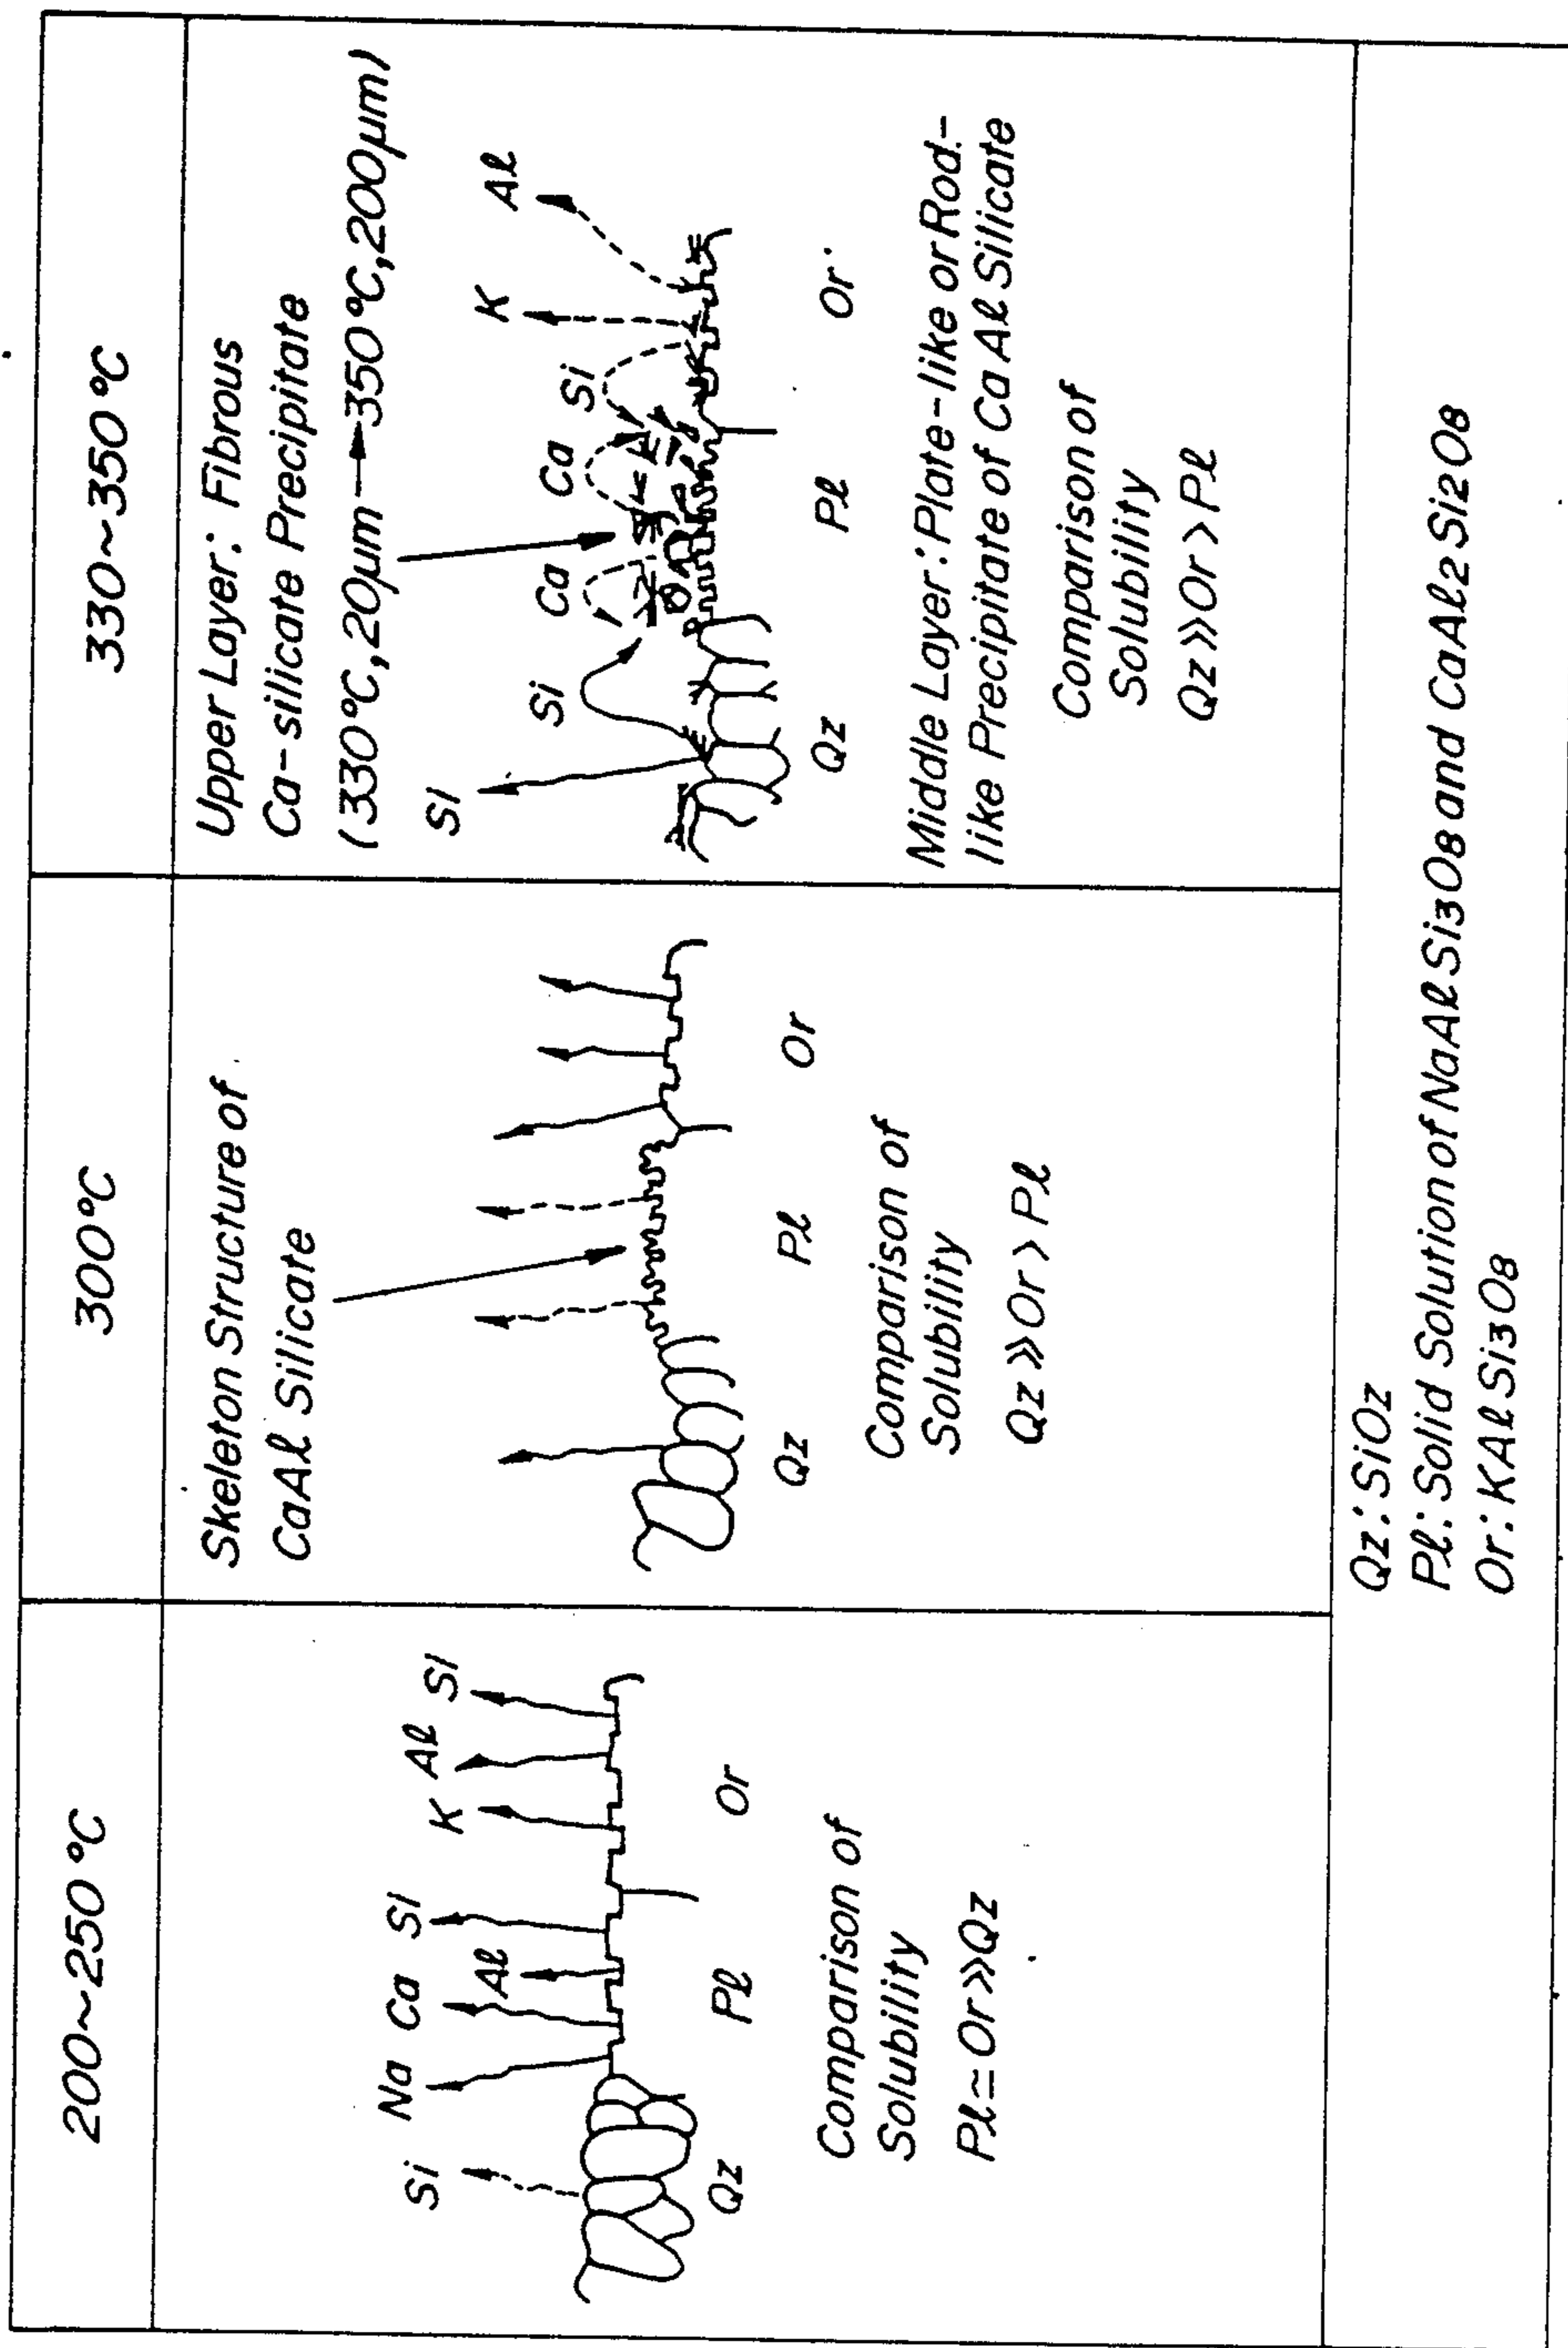 200~250°C
Si
Na Ca Si
Al
K Al Si
Qz Pl Or
Comparison of
Solubility
Pl≃Or≫Qz
300°C
Skeleton Structure of
CaAl Silicate
Qz Pl Or
Comparison of
Solubility
Qz≫Or>Pl
330~350°C
Upper Layer: Fibrous
Ca-silicate Precipitate
(330°C,20μm→350°C,200μm)
Si Si Ca Ca Si K Al
Qz Pl Or
Middle Layer: Plate-like or Rod-
like Precipitate of Ca Al Silicate
Comparison of
Solubility
Qz≫Or>Pl
Qz: SiO2
Pl: Solid Solution of NaAlSi3O8 and CaAl2Si2O8
Or: KAlSi3O8